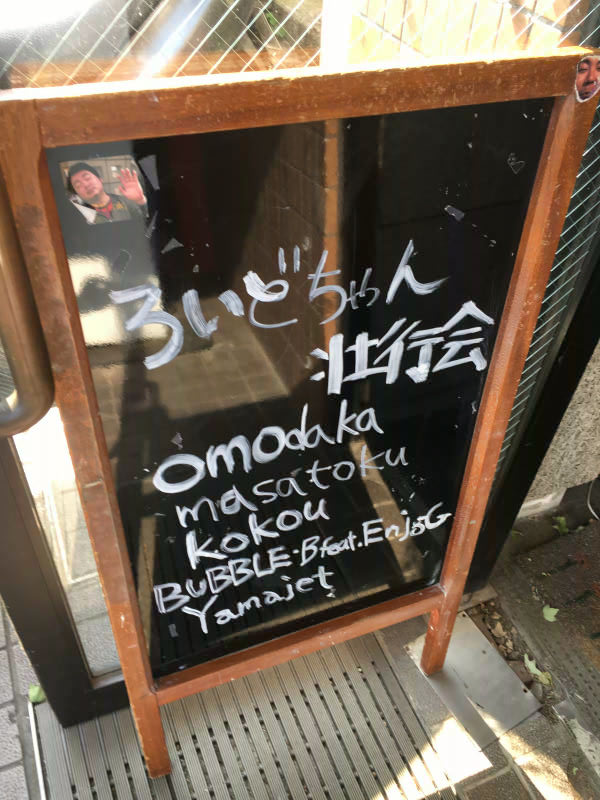 ろいどちゃん
壮行会
omodaka
masatoku
kokou
BUBBLE-B feat. EnjoG
Yamajet